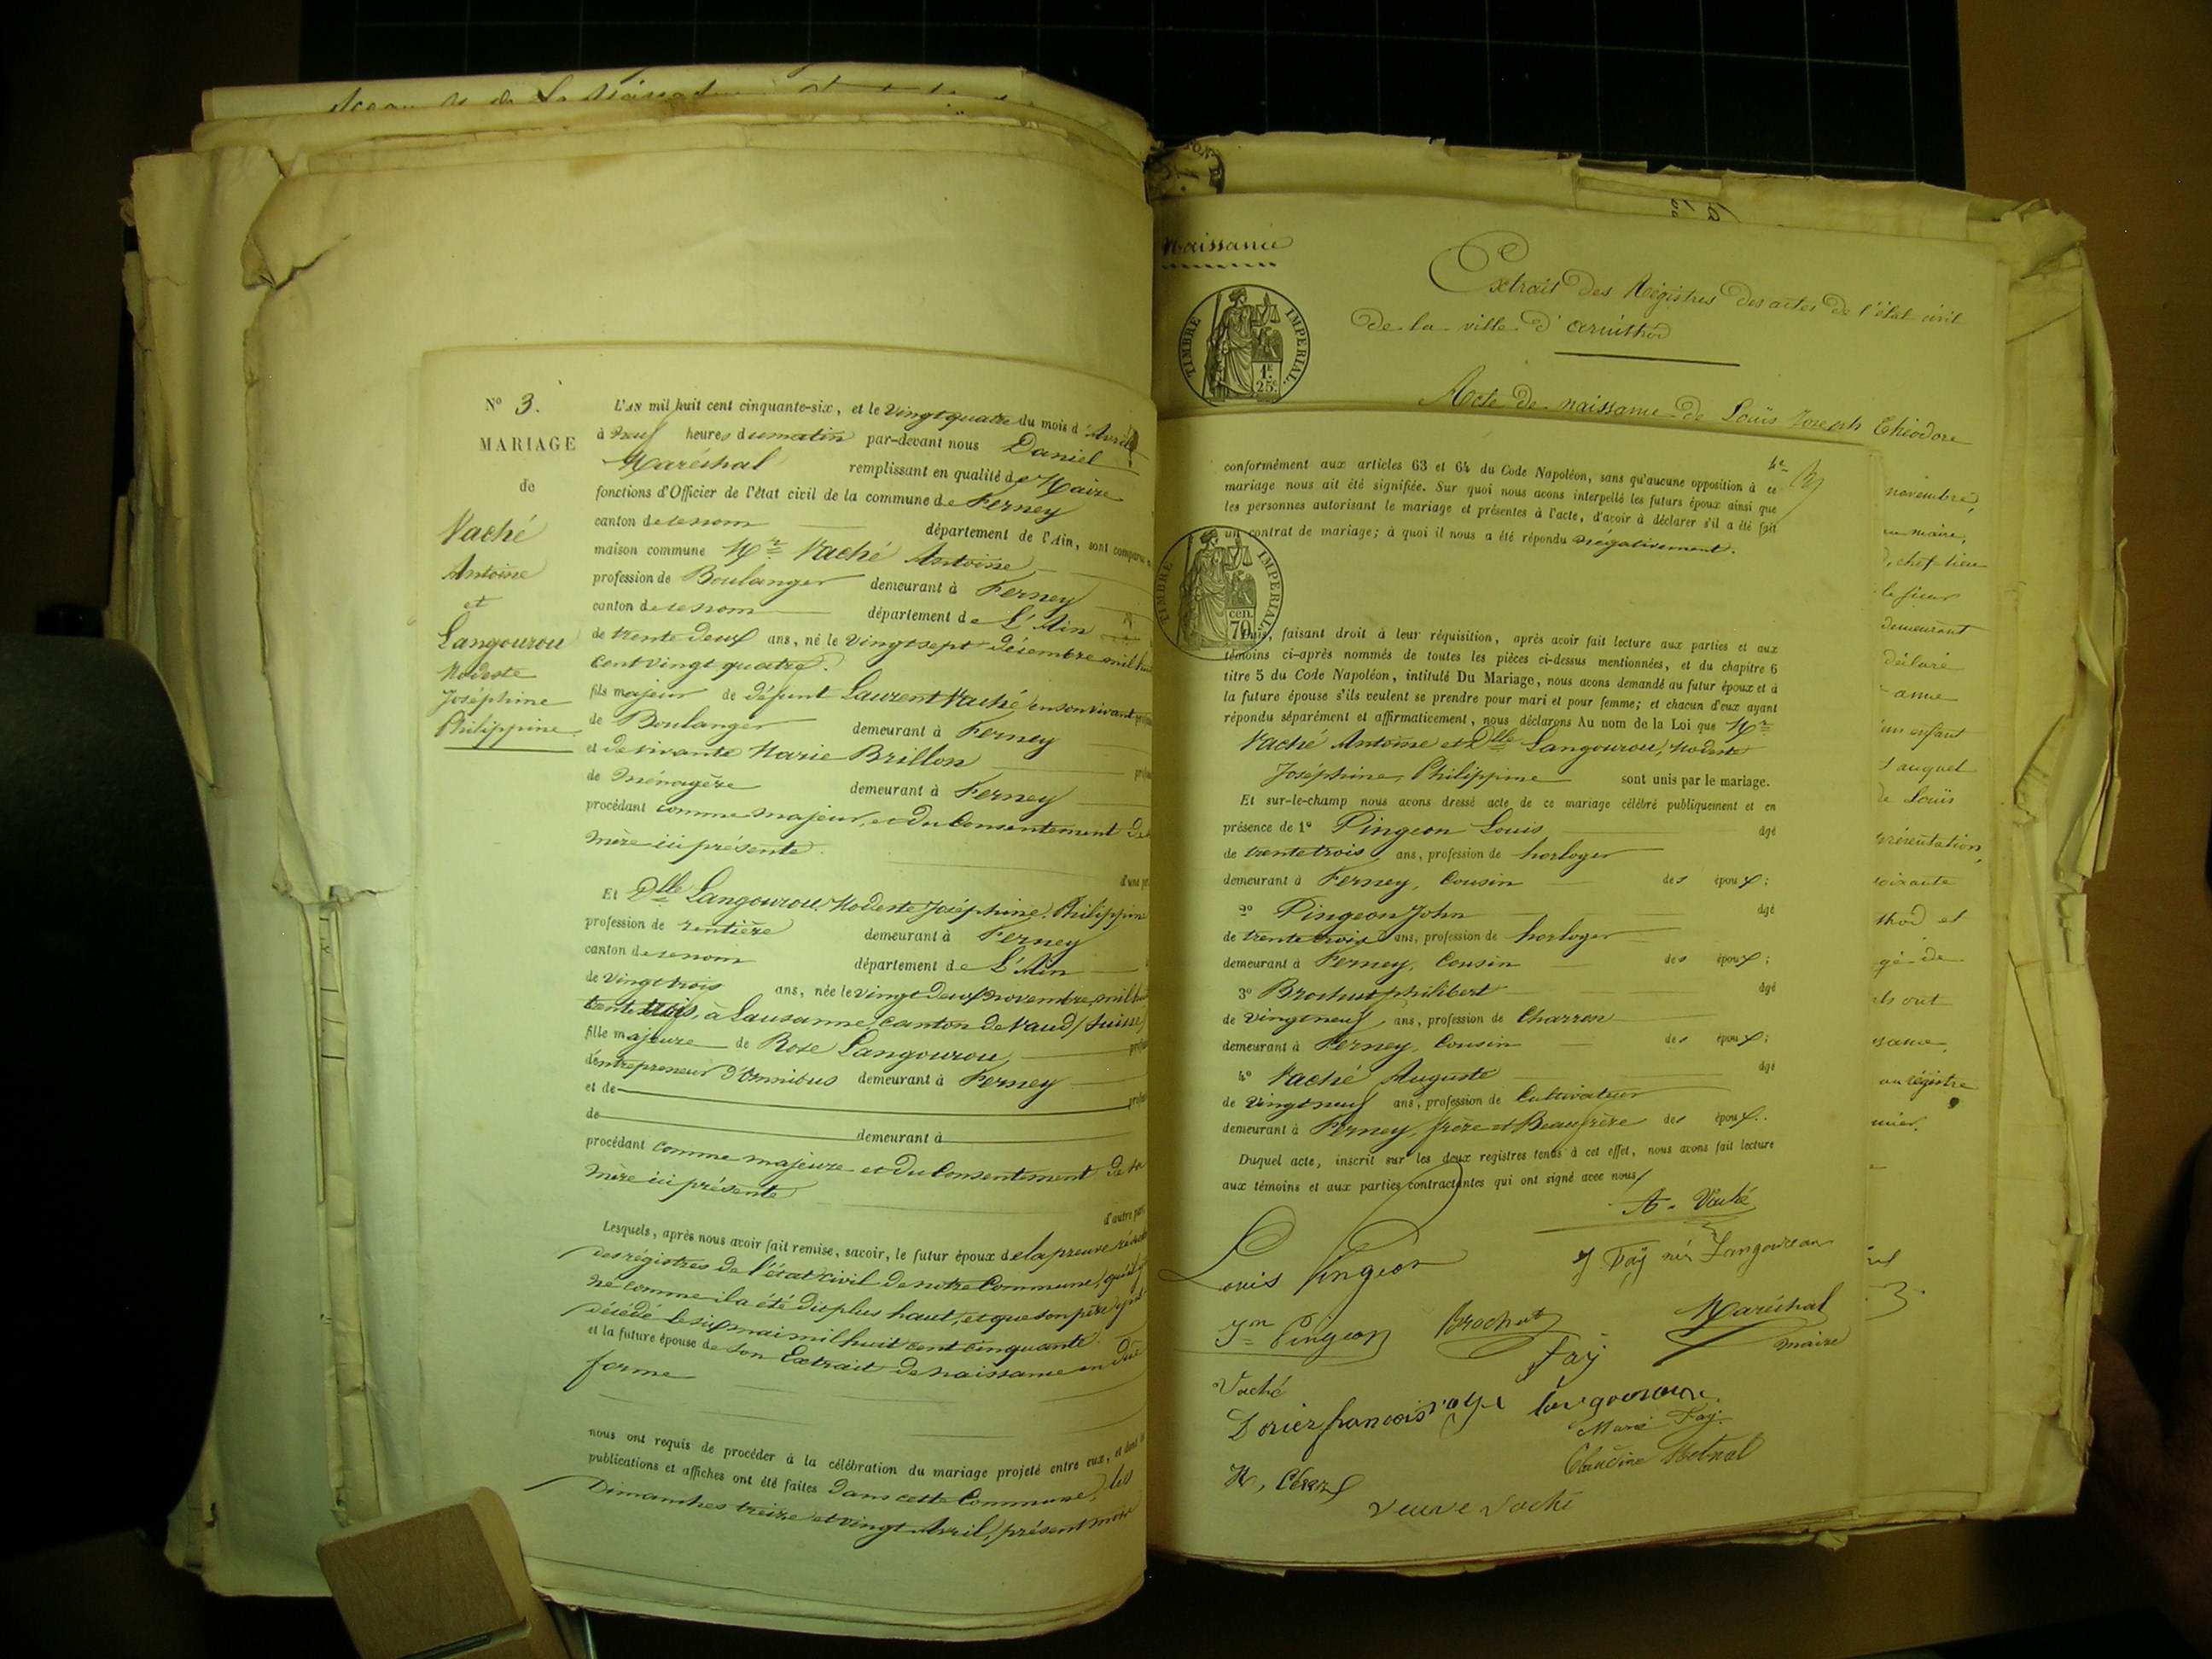 Naissance
Extrait des Régistres des actes de l'état civil
de la ville d'arinthod
TIMBRE IMPERIAL
1F. 25c.
Acte de naissance de Louis Joseph Théodore
N° 3.
MARIAGE
de
Vaché
Antoine
et
Langourou
Modeste
Joséphine
Philippine
L'AN mil huit cent cinquante-six, et le Vingt quatre du mois d'Avril
à neuf heures du matin par-devant nous Daniel
Maréchal remplissant en qualité de Maire
fonctions d'Officier de l'état civil de la commune de Ferney
canton de ce nom département de l'Ain, sont comparus
maison commune Mr Vaché Antoine
profession de Boulanger demeurant à Ferney
canton de ce nom département de L'Ain
de trente deux ans, né le Vingt sept décembre mil huit
cent vingt quatre.
fils majeur de défunt Laurent Vaché en son vivant
de Boulanger demeurant à Ferney
et de vivante Marie Brillon
de ménagère demeurant à Ferney
procédant comme majeur, et du Consentement de
mère ici présente.
d'une
Et Dlle Langourou Modeste Joséphine Philippine
profession de rentière demeurant à Ferney
canton de ce nom département de L'Ain
de Vingt trois ans, née le vingt deux novembre mil
trente trois, à Lausanne, Canton de Vaud (Suisse)
fille majeure de Rose Langourou,
d'entrepreneur d'Omnibus demeurant à Ferney
et de
de demeurant à
procédant comme majeure et du Consentement de sa
mère ici présente
d'autre part
Lesquels, après nous avoir fait remise, savoir, le futur époux de la preuve
des régistres de l'état civil de notre Commune, qu'il
né comme il a été dit plus haut, et que son père y est
décédé le six mai mil huit cent cinquante.
et la future épouse de son Extrait de naissance en due
forme
nous ont requis de procéder à la célébration du mariage projeté entre eux, et dont les
publications et affiches ont été faites dans cette Commune, les
Dimanches treize et vingt Avril, présent mois
conformément aux articles 63 et 64 du Code Napoléon, sans qu'aucune opposition à ce
mariage nous ait été signifiée. Sur quoi nous avons interpellé les futurs époux ainsi que
les personnes autorisant le mariage et présentes à l'acte, d'avoir à déclarer s'il a été fait
un contrat de mariage; à quoi il nous a été répondu négativement.
TIMBRE IMPERIAL
cen. 70
Puis, faisant droit à leur réquisition, après avoir fait lecture aux parties et aux
témoins ci-après nommés de toutes les pièces ci-dessus mentionnées, et du chapitre 6
titre 5 du Code Napoléon, intitulé Du Mariage, nous avons demandé au futur époux et à
la future épouse s'ils veulent se prendre pour mari et pour femme; et chacun d'eux ayant
répondu séparément et affirmativement, nous déclarons Au nom de la Loi que Mr
Vaché Antoine et Dlle Langourou, Modeste
Joséphine, Philippine sont unis par le mariage.
Et sur-le-champ nous avons dressé acte de ce mariage célébré publiquement et en
présence de 1° Pingeon Louis âgé
de trente trois ans, profession de horloger
demeurant à Ferney, Cousin des époux;
2° Pingeon John âgé
de trente trois ans, profession de horloger
demeurant à Ferney, Cousin des époux;
3° Brochut philibert âgé
de Vingt neuf ans, profession de Charron
demeurant à Ferney, Cousin des époux;
4° Vaché Auguste âgé
de Vingt neuf ans, profession de Cultivateur
demeurant à Ferney, frère et Beau frère des époux.
Duquel acte, inscrit sur les deux registres tenus à cet effet, nous avons fait lecture
aux témoins et aux parties contractantes qui ont signé avec nous
A. Vaché
Louis Pingeon
Fäy née Langoureau
Jn Pingeon
Brochut
Maréchal
maire
Fäy
Vaché
Dorier françois
Marie Fay
Claudine
Veuve Vaché
novembre,
maire,
chef-lieu
le sieur
demeurant
déclaré
un enfant
auquel
de Louis
présentation,
soixante
thod et
gé de
ils ont
au régistre